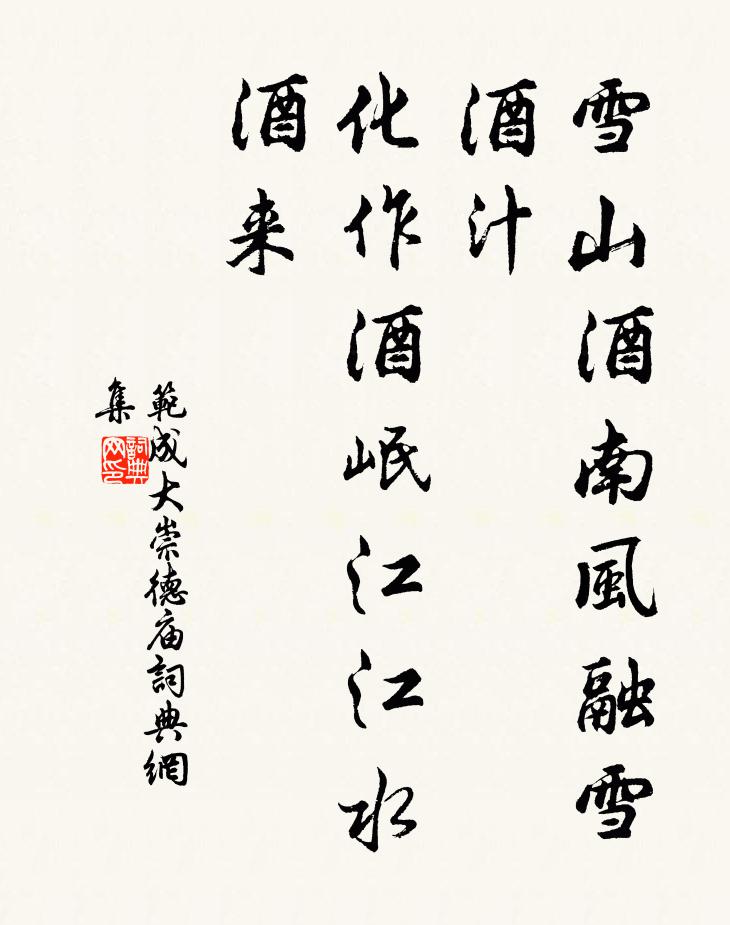 雪山酒南風融雪
酒汁
化作酒岷江江水
酒来
範成大崇德庙詞典網
集
詞典
网印